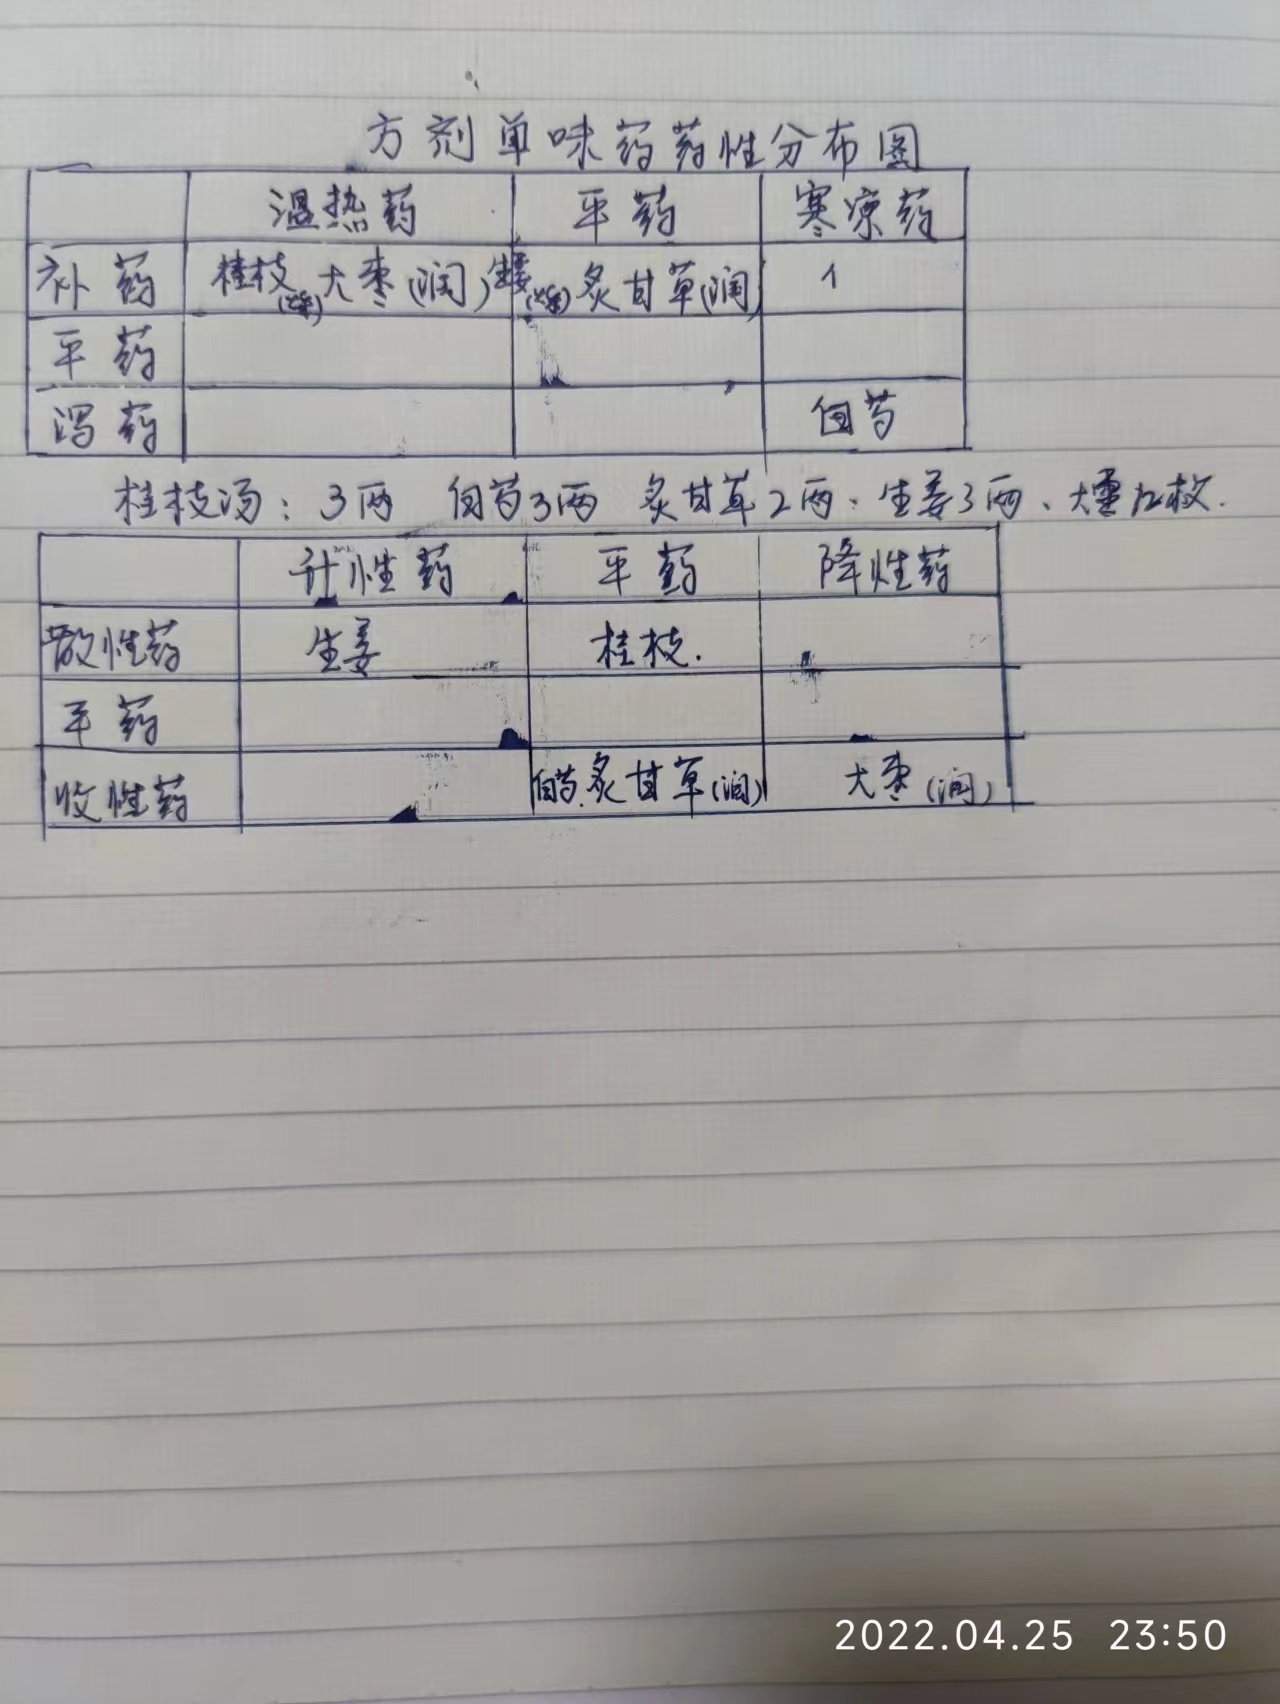 方剂单味药药性分布图
温热药 平药 寒凉药
补药 桂枝(燥) 大枣(润) 生姜(燥) 炙甘草(润)
平药
泻药 白芍
桂枝汤: 3两 白芍3两 炙甘草2两、生姜3两、大枣12枚.
升性药 平药 降性药
散性药 生姜 桂枝.
平药
收性药 白芍.炙甘草(润) 大枣(润)
2022.04.25 23:50